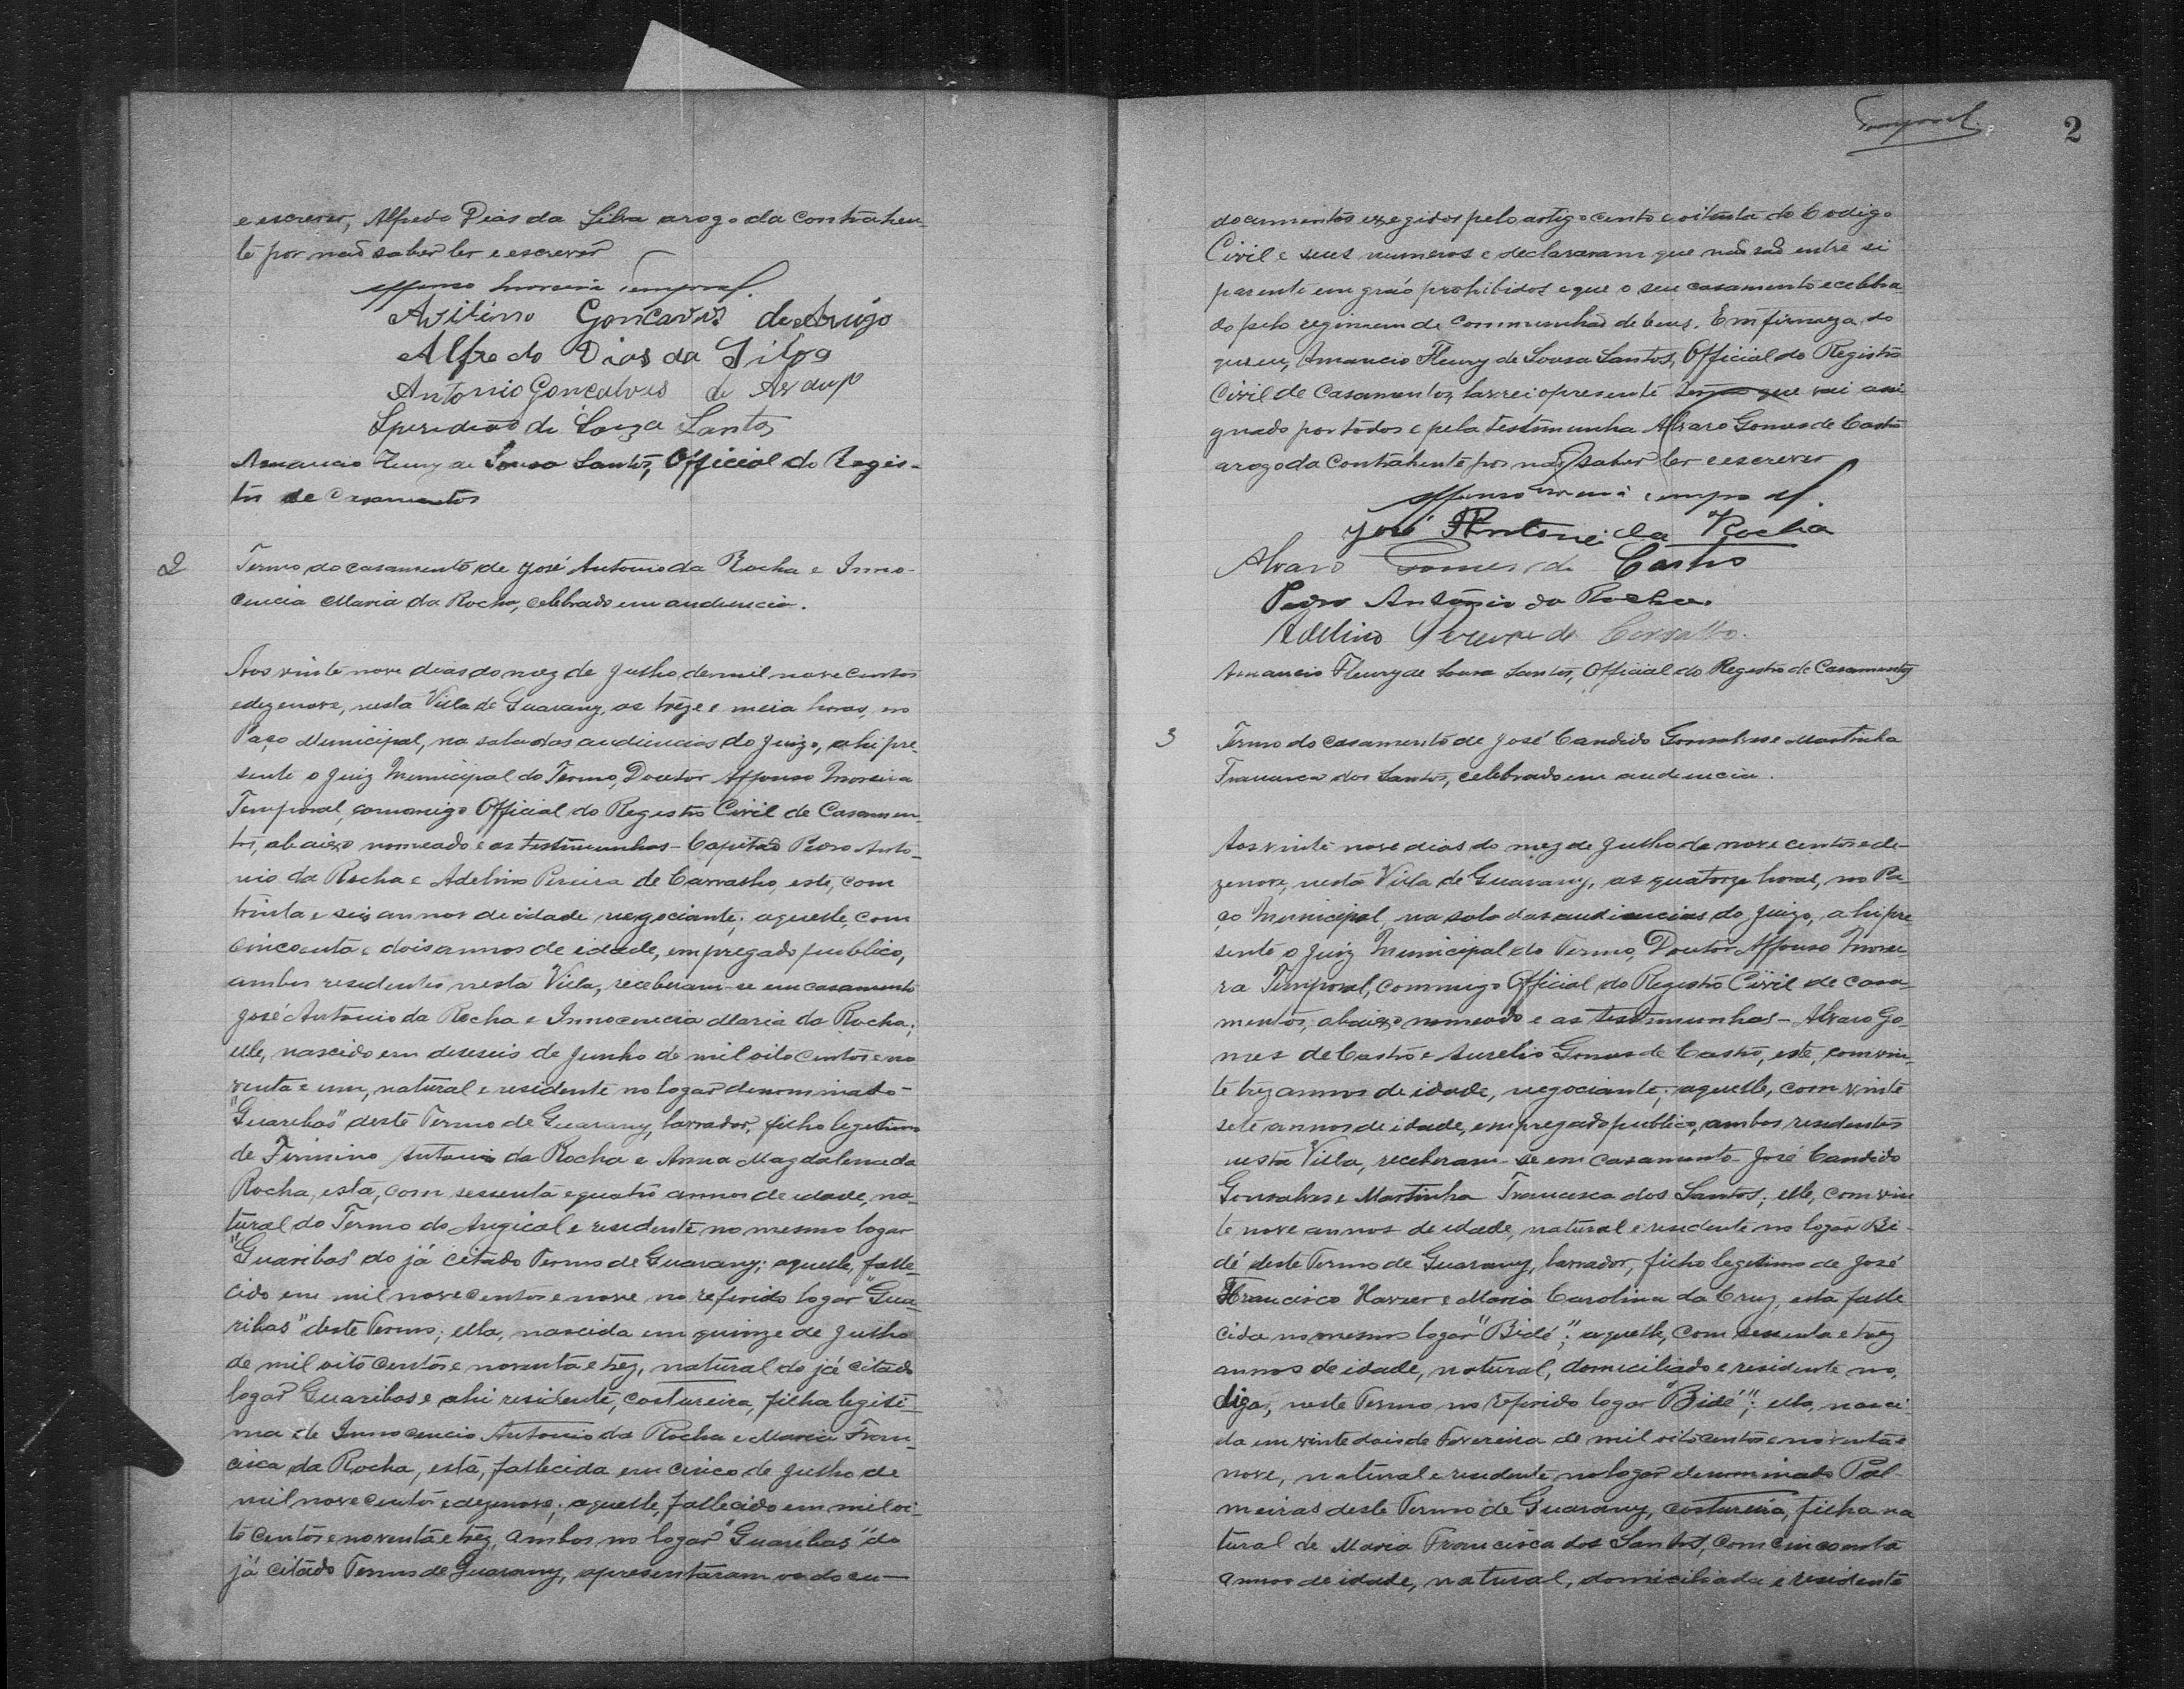 e escrever, Alfredo Dias da Silva arogo da contrahen-
te por não saber ler e escrever
Affonso Moreira Temporal.
Avilino Goncavis de Araujo
Alfredo Dias da Silva
Antonio Gonçalves de Araujo
Speridião de Souza Santos
Amancio Fleury de Sousa Santos, Official do Regis-
tro de Casamentos
2
Termo do casamento de José Antonio da Rocha e Inno-
cencia Maria da Rocha, celebrado em audiencia.
Aos vinte nove dias do mez de Julho de mil nove centos
e dezenove, nesta Villa de Guarany, as treze e meia horas, no
Paço Municipal, na sala das audiencias do Juizo, ahi pre-
sente o Juiz Municipal do Termo, Doutor Affonso Moreira
Temporal, commigo Official do Registro Civil de Casamen-
tos, abaixo nomeado e as testimunhas - Capitão Pedro Anto-
nio da Rocha e Adelino Pereira de Carvalho, este, com
trinta e seis annos de idade, negociante; aquelle, com
cincoenta e dois annos de idade, empregado publico,
ambos residentes nesta Villa, receberam-se em casamento
José Antonio da Rocha e Innocencia Maria da Rocha;
elle, nascido em deseseis de Junho de mil oito centos e no-
venta e um, natural e residente no logar denominado -
"Guaribas" deste Termo de Guarany, lavrador, filho legitimo
de Firmino Antonio da Rocha e Anna Magdalena da
Rocha, esta, com sessenta e quatro annos de idade, na-
tural do Termo do Angical e residente no mesmo logar
"Guaribas" do já citado Termo de Guarany; aquelle, falle-
cido em mil nove centos e nove no referido logar "Gua-
ribas" deste Termo; ella, nascida em quinze de Julho
de mil oito centos e noventa e trez, natural do já citado
logar Guaribas e ahi residente, costureira, filha legiti-
ma de Innocencio Antonio da Rocha e Maria Fran-
cisca da Rocha, esta, fallecida em cinco de Julho de
mil nove centos e dezenove; aquelle, fallecido em mil oi-
to centos e noventa e trez, ambos no logar "Guaribas" do
já citado Termo de Guarany, apresentaram os docu-
Temporal.
2
documentos exegidos pelo artigo cento e oitenta do Codigo
Civil e seus numeros e declararam que não são entre si
parente em gráo prohibidos e que o seu casamento é celebra-
do pelo regimem de communhão de bens. Em firmeza do
que eu, Amancio Fleury de Sousa Santos, Official do Registro
Civil de Casamentos, lavrei o presente termo que vai assi-
gnado por todos e pela testimunha Alvaro Gomes de Castro
arogo da contrahente por não saber ler e escrever
Affonso Moreira Temporal.
José Antonio da Rocha
Alvaro Gomes de Castro
Pedro Antônio da Rocha.
Adelino Pereira de Carvalho.
Amancio Fleury de Sousa Santos, Official do Registro de Casamentos
3
Termo do casamento de José Candido Gonsalves e Martinha
Francisca dos Santos, celebrado em audiencia.
Aos vinte nove dias do mez de Julho de nove centos e de-
zenove, nesta Villa de Guarany, as quatorze horas, no Pa-
ço Municipal, na sala das audiencias do Juizo, ahi pre-
sente o Juiz Municipal do Termo, Doutor Affonso Morei-
ra Temporal, commigo Official do Registro Civil de casa-
mentos, abaixo nomeado e as testimunhas - Alvaro Go-
mes de Castro e Aurelio Gomes de Castro, este, com vin-
te trez annos de idade, negociante; aquelle, com vinte
sete annos de idade, empregado publico, ambos residentes
nesta Villa, receberam-se em casamento José Candido
Gonsalves e Martinha Francisca dos Santos; elle, com vin
te nove annos de idade, natural e residente no logar Bi-
dé deste Termo de Guarany, lavrador, filho legitimo de José
Francisco Xavier e Maria Carolina da Cruz, esta falle
cida no mesmo logar "Bidé"; aquelle, com sessenta e trez
annos de idade, natural, domiciliado e residente no,
digo, neste Termo no referido logar "Bidé"; ella, nasci-
da em vinte dois de Fevereiro de mil oito centos e noventa e
nove, natural e residente no logar denominado Pal-
meiras deste Termo de Guarany, costureira, filha na
tural de Maria Francisca dos Santos, com cincoenta
annos de idade, natural, domiciliada e residente